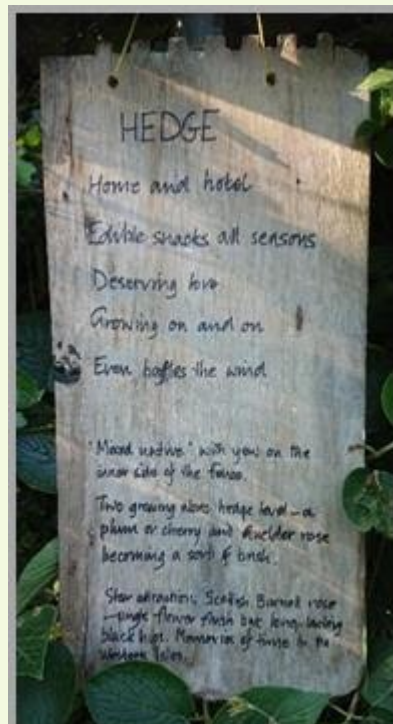 HEDGE
Home and hotel
Edible snacks all seasons
Deserving love
Growing on and on
Even baffles the wind
"Mixed native" with yew on the
inner side of the fence.
Two growing above hedge level – a
plum or cherry and Guelder rose
becoming a sort of brush.
Star attraction, Scottish Burnet rose
– single flower flush but long-lasting
black hips. Memories of time in the
Western Isles.